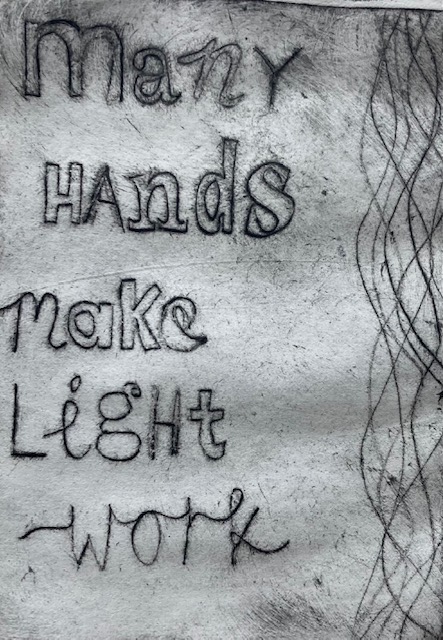 many
HAnds
make
LigHt
work